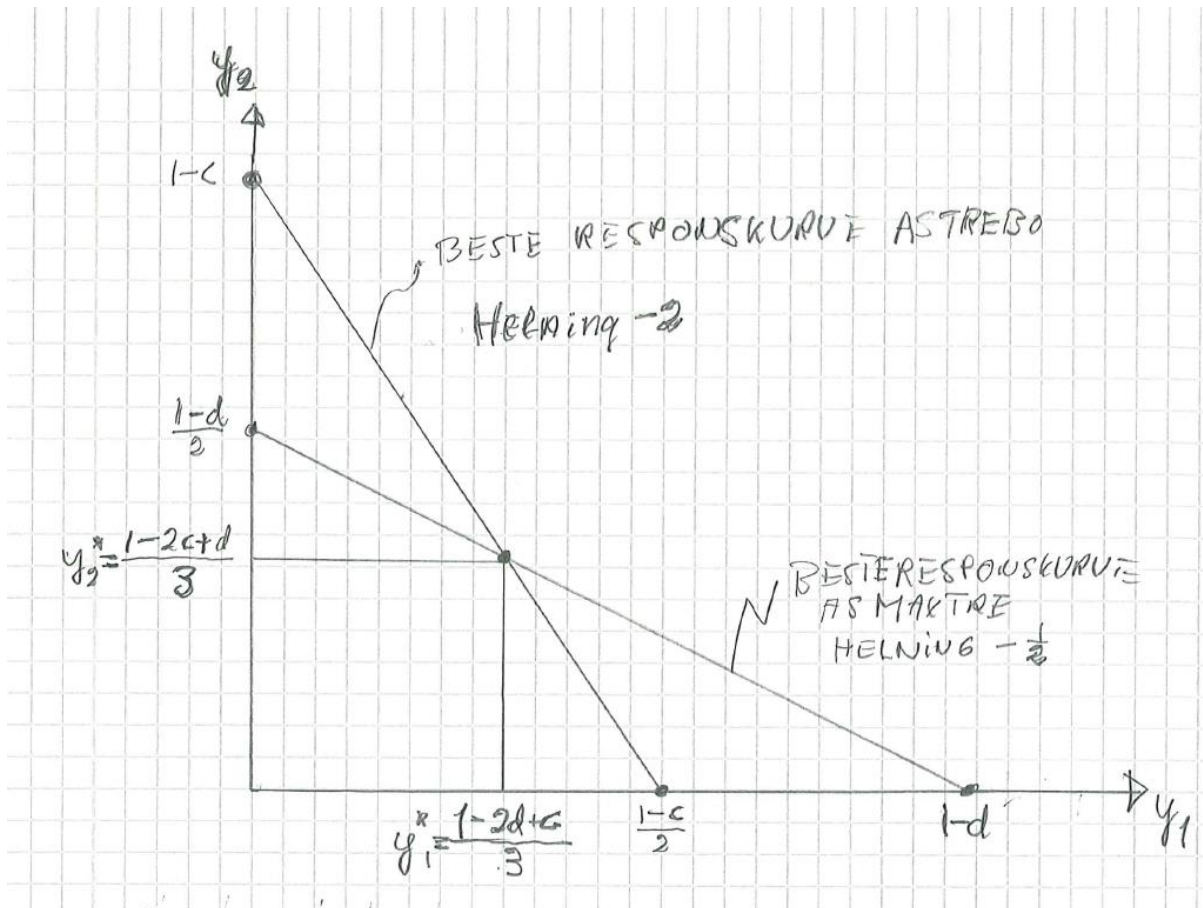 y₂
1-c
BESTE RESPONSKURVE ASTREBO
Helning -2
1-d
2
y₂* = 1-2c+d
3
BESTERESPONSKURVE
AS MAXTRE
HELNING - 1/2
y₁* = 1-2d+c
3
1-c
2
1-d
y₁